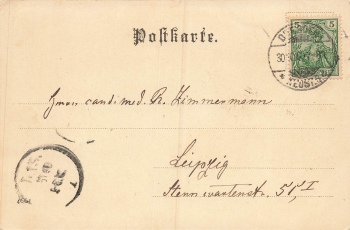 Postkarte.
5
Herrn cand. med. R. Zimmermann
Leipzig
Sternwartenstr. 51, I